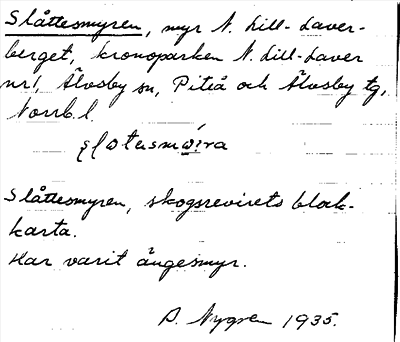 Slåttesmyren, myr N. Lill-Laver-
berget, kronoparken N. Lill-Laver
nr 1, Älvsby sn, Piteå och Älvsby tg,
Norrb. l.
Slåttesmyren, skogsrevirets blok-
karta.
Har varit ängesmyr.
D. Nygren 1935.